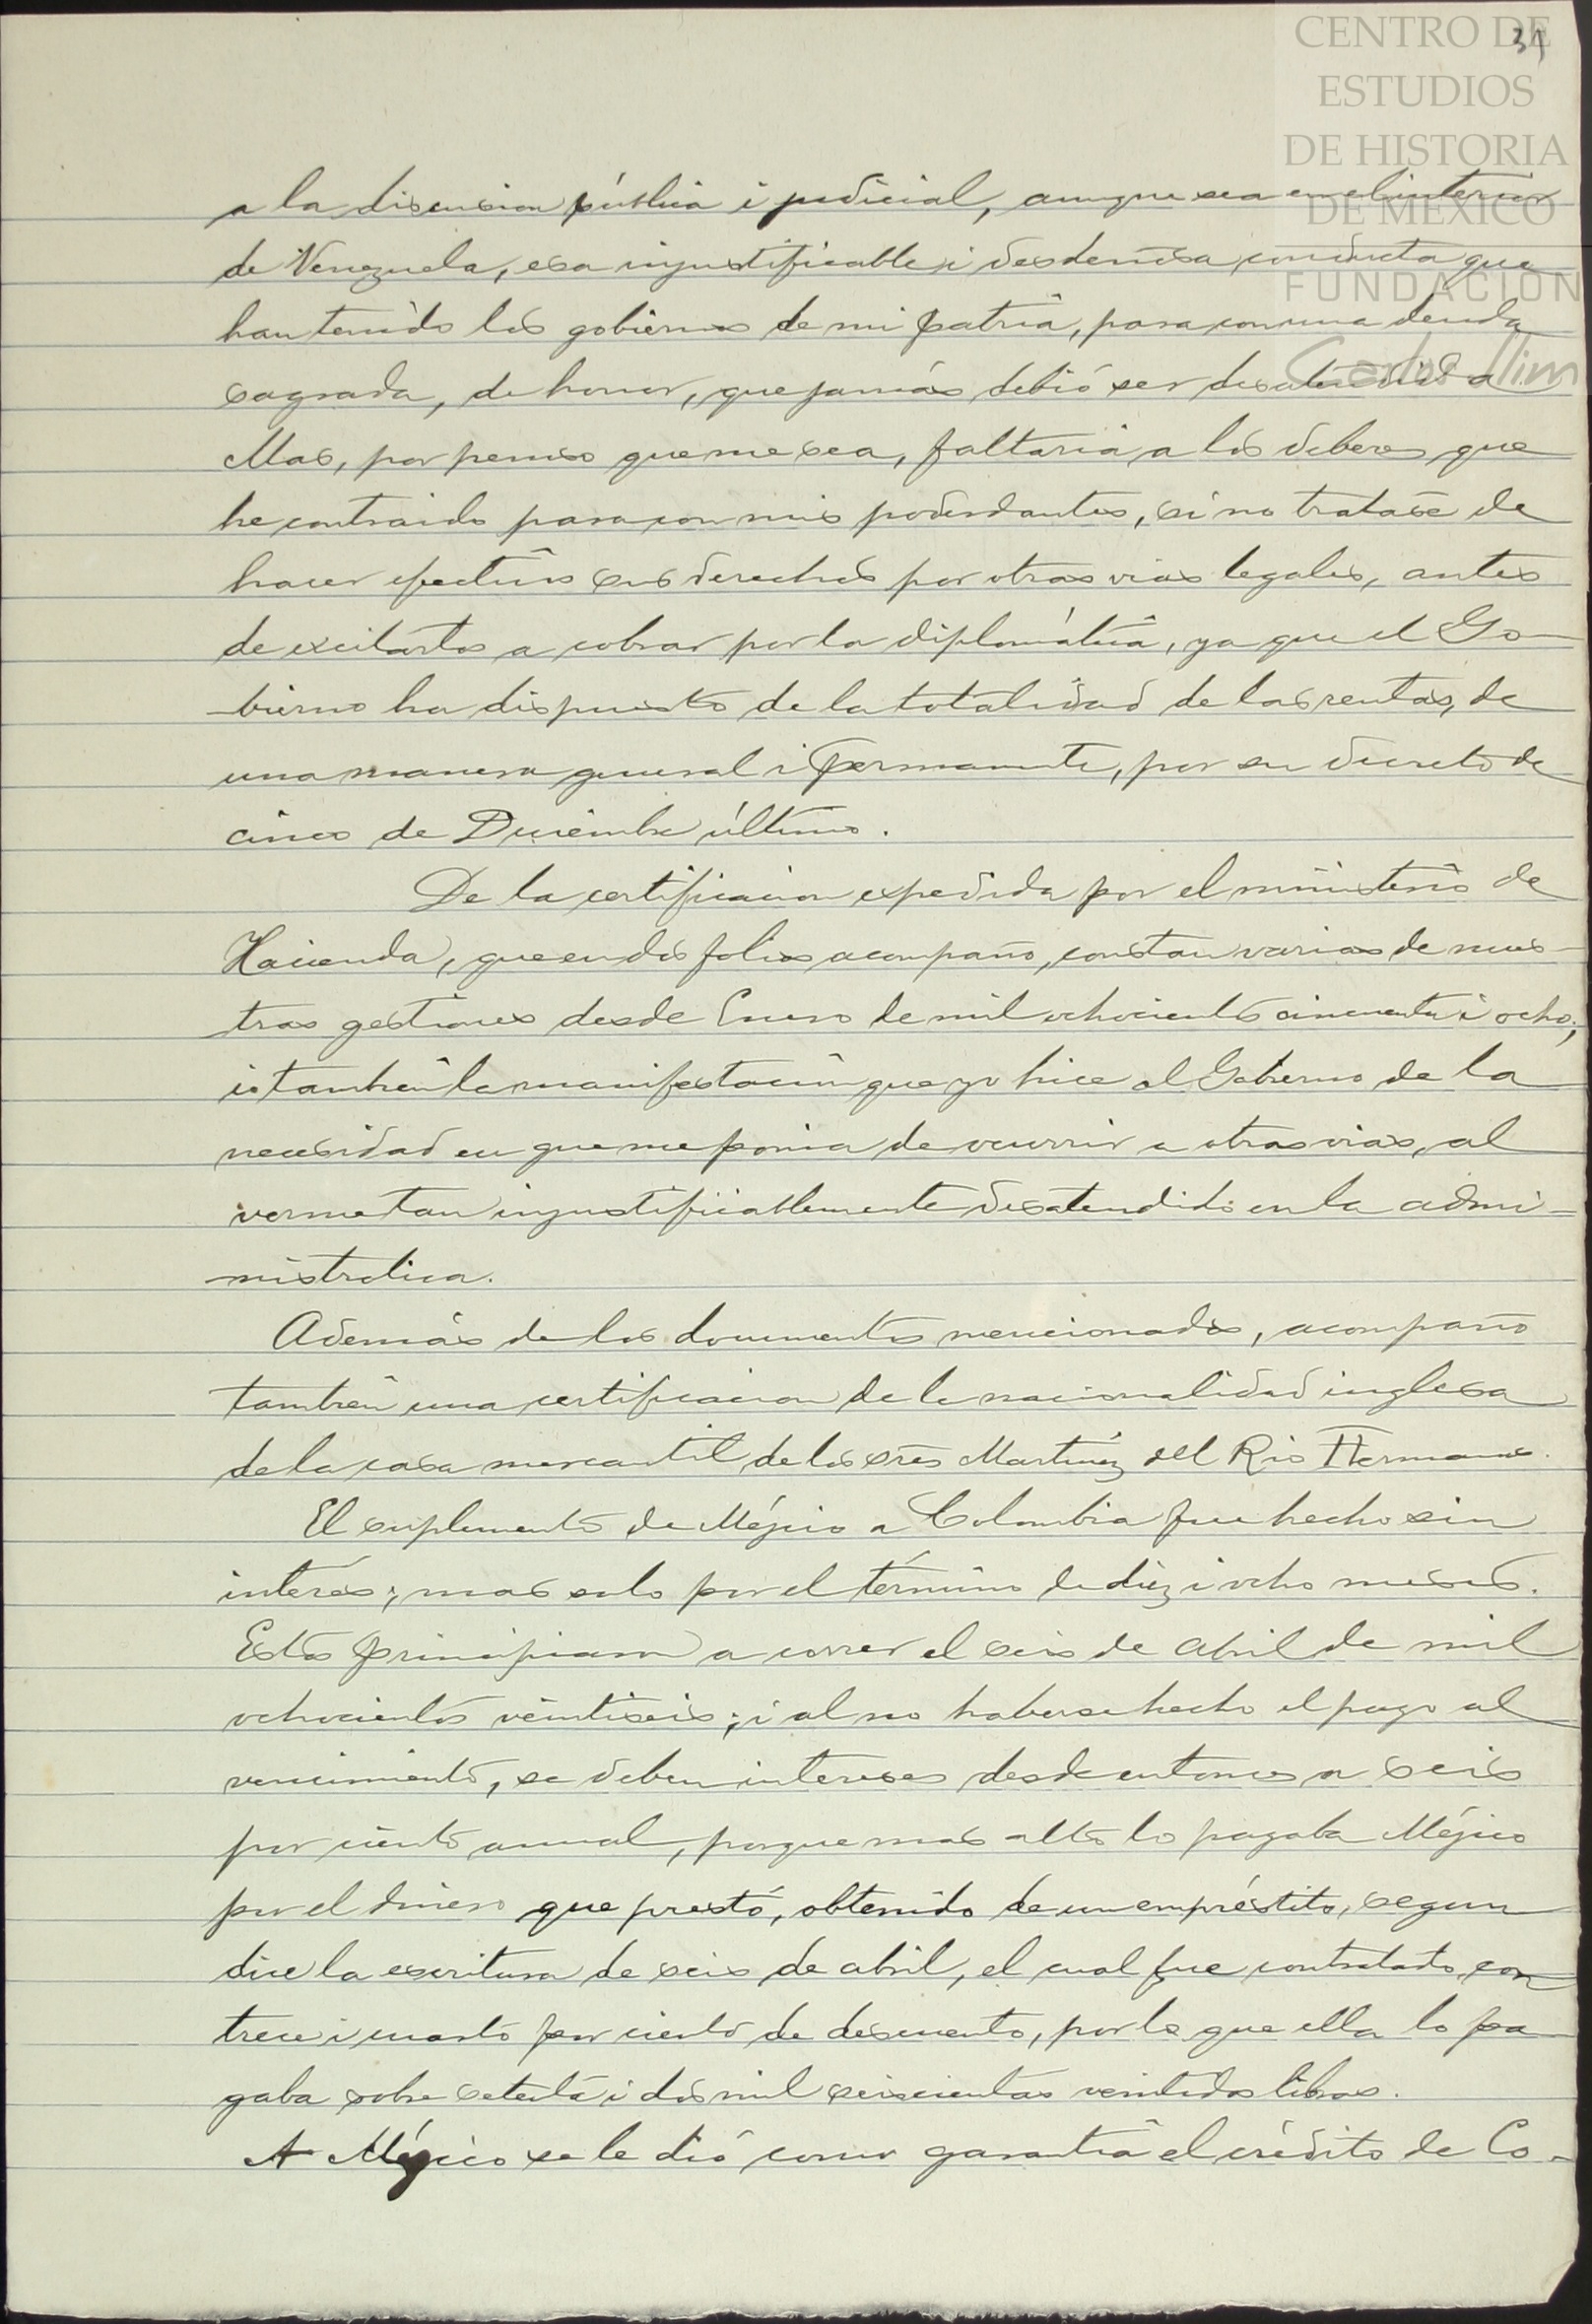 CENTRO DE
ESTUDIOS
DE HISTORIA
DE MEXICO
FUNDACION
Carlos Slim
a la discusion pública i judicial, aunque sea en el interior
de Venezuela, esa injustificable i desdeñosa conducta que
han tenido los gobiernos de mi patria, para con una deuda
sagrada, de honor, que jamás debió ser desatendida.
Mas, por penoso que me sea, faltaria a los deberes que
he contraido para con mis poderdantes, si no tratase de
hacer efectivos sus derechos por otras vias legales, antes
de excitarlos a cobrar por la diplomática, ya que el Go-
-bierno ha dispuesto de la totalidad de las rentas, de
una manera general i permanente, por su decreto de
cinco de Diciembre último.
De la certificacion expedida por el ministerio de
Hacienda, que en dos folios acompaño, constan varias de nues-
tras gestiones desde Enero de mil ochocientos cincuenta i ocho;
i tambien la manifestacion que yo hice al Gobierno de la
necesidad en que me ponia de ocurrir a otras vias, al
verme tan injustificablemente desatendido en la admi-
-nistrativa.
Además de los documentos mencionados, acompaño
tambien una certificacion de la nacionalidad inglesa
de la casa mercantil de los sres Martinez del Rio Hermanos.
El suplemento de Méjico a Colombia fue hecho sin
interes; mas solo por el término de diez i ocho meses.
Estos principiaron a correr el seis de abril de mil
ochocientos veintiseis; i al no haberse hecho el pago al
vencimiento, se deben intereses desde entonces a seis
por ciento anual, porque mas alto lo pagaba Méjico
por el dinero que prestó, obtenido de un empréstito, segun
dice la escritura de seis de abril, el cual fue contratado con
trece i cuarto por ciento de descuento, por lo que ella lo pa-
gaba sobre setenta i dos mil seiscientas veintidos libras.
A Méjico se le dió como garantia el crédito de Co-